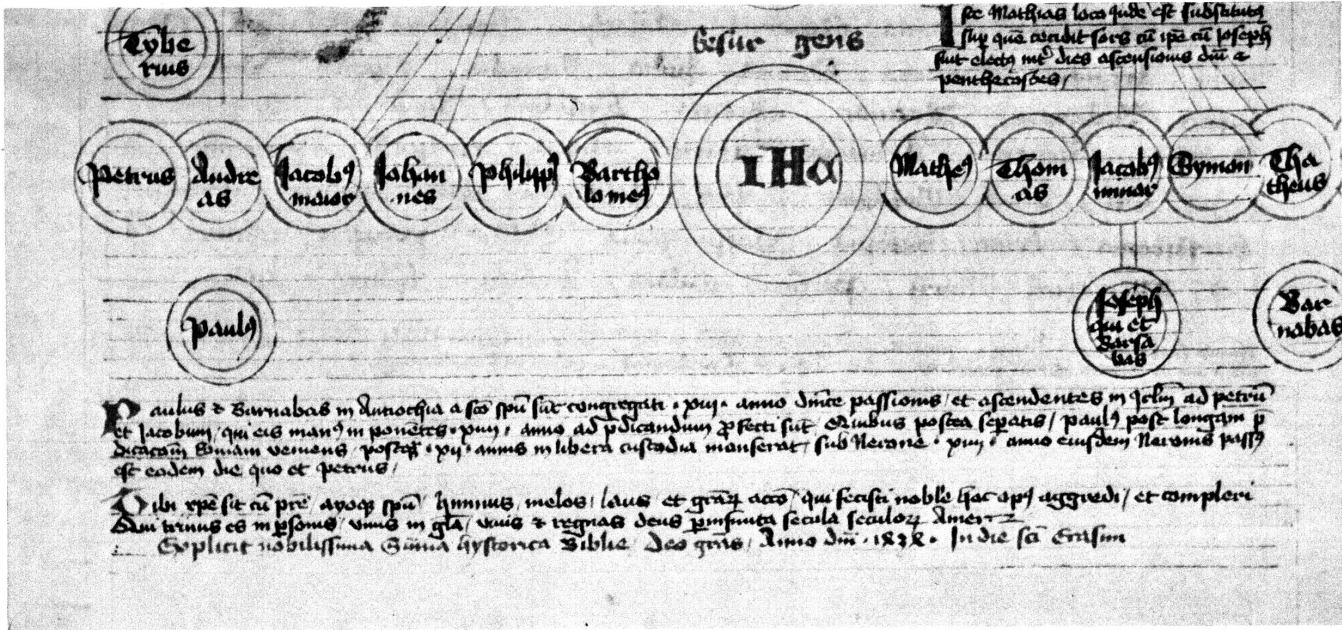 Tybe
rius
besur gens
Iste Mathias loco Jude est substitutq
sup quē cecidit sors cū ipē cū Joseph
fuit electq int' dies ascensionis dm̄ et
penthecostes /
Petrus
Andre
as
Jacobq
maior
Johan
nes
Philippq
Bartho
lomeq
IHC
Matheq
Thom
as
Jacobq
minor
Symon
Tha
theus
Paulq
Joseph
qui et
Barsa
bas
Bar
nabas
Paulus & Barnabas in Antiochia a sc̄o spū sūt congregati · xiii · anno dn̄ice passionis / et ascendentes in Jrlm̄ ad petrū
et Jacobum / qui eis manq inponētes · xiiii · anno ad p̄dicandum ꝓfecti sūt E quibus postea sepatis / paulq post longam p̄
dicacōm̄ Romam veniens / postq̄ · xii · annis in libera custodia manserat / sub Nerone · xiiii · anno eiusdem Neronis passq
est eodem die quo et petrus /
Tibi xpē sit cū pr̄e / atoqꝫ spū / himnus / melos / laus et gr̄aꝝ acc̄o / qui fecisti noble hoc opq aggredi / et compleri
Qui trinus es in psonis / vnus in gl̄a / viuis & regnas deus p̱ infinita secula seculoꝝ Amen
Explicit nobilissima Sūma hystorica Biblie / Deo gr̄as / Anno dm̄ · 1838 · In die sc̄i Erasmi